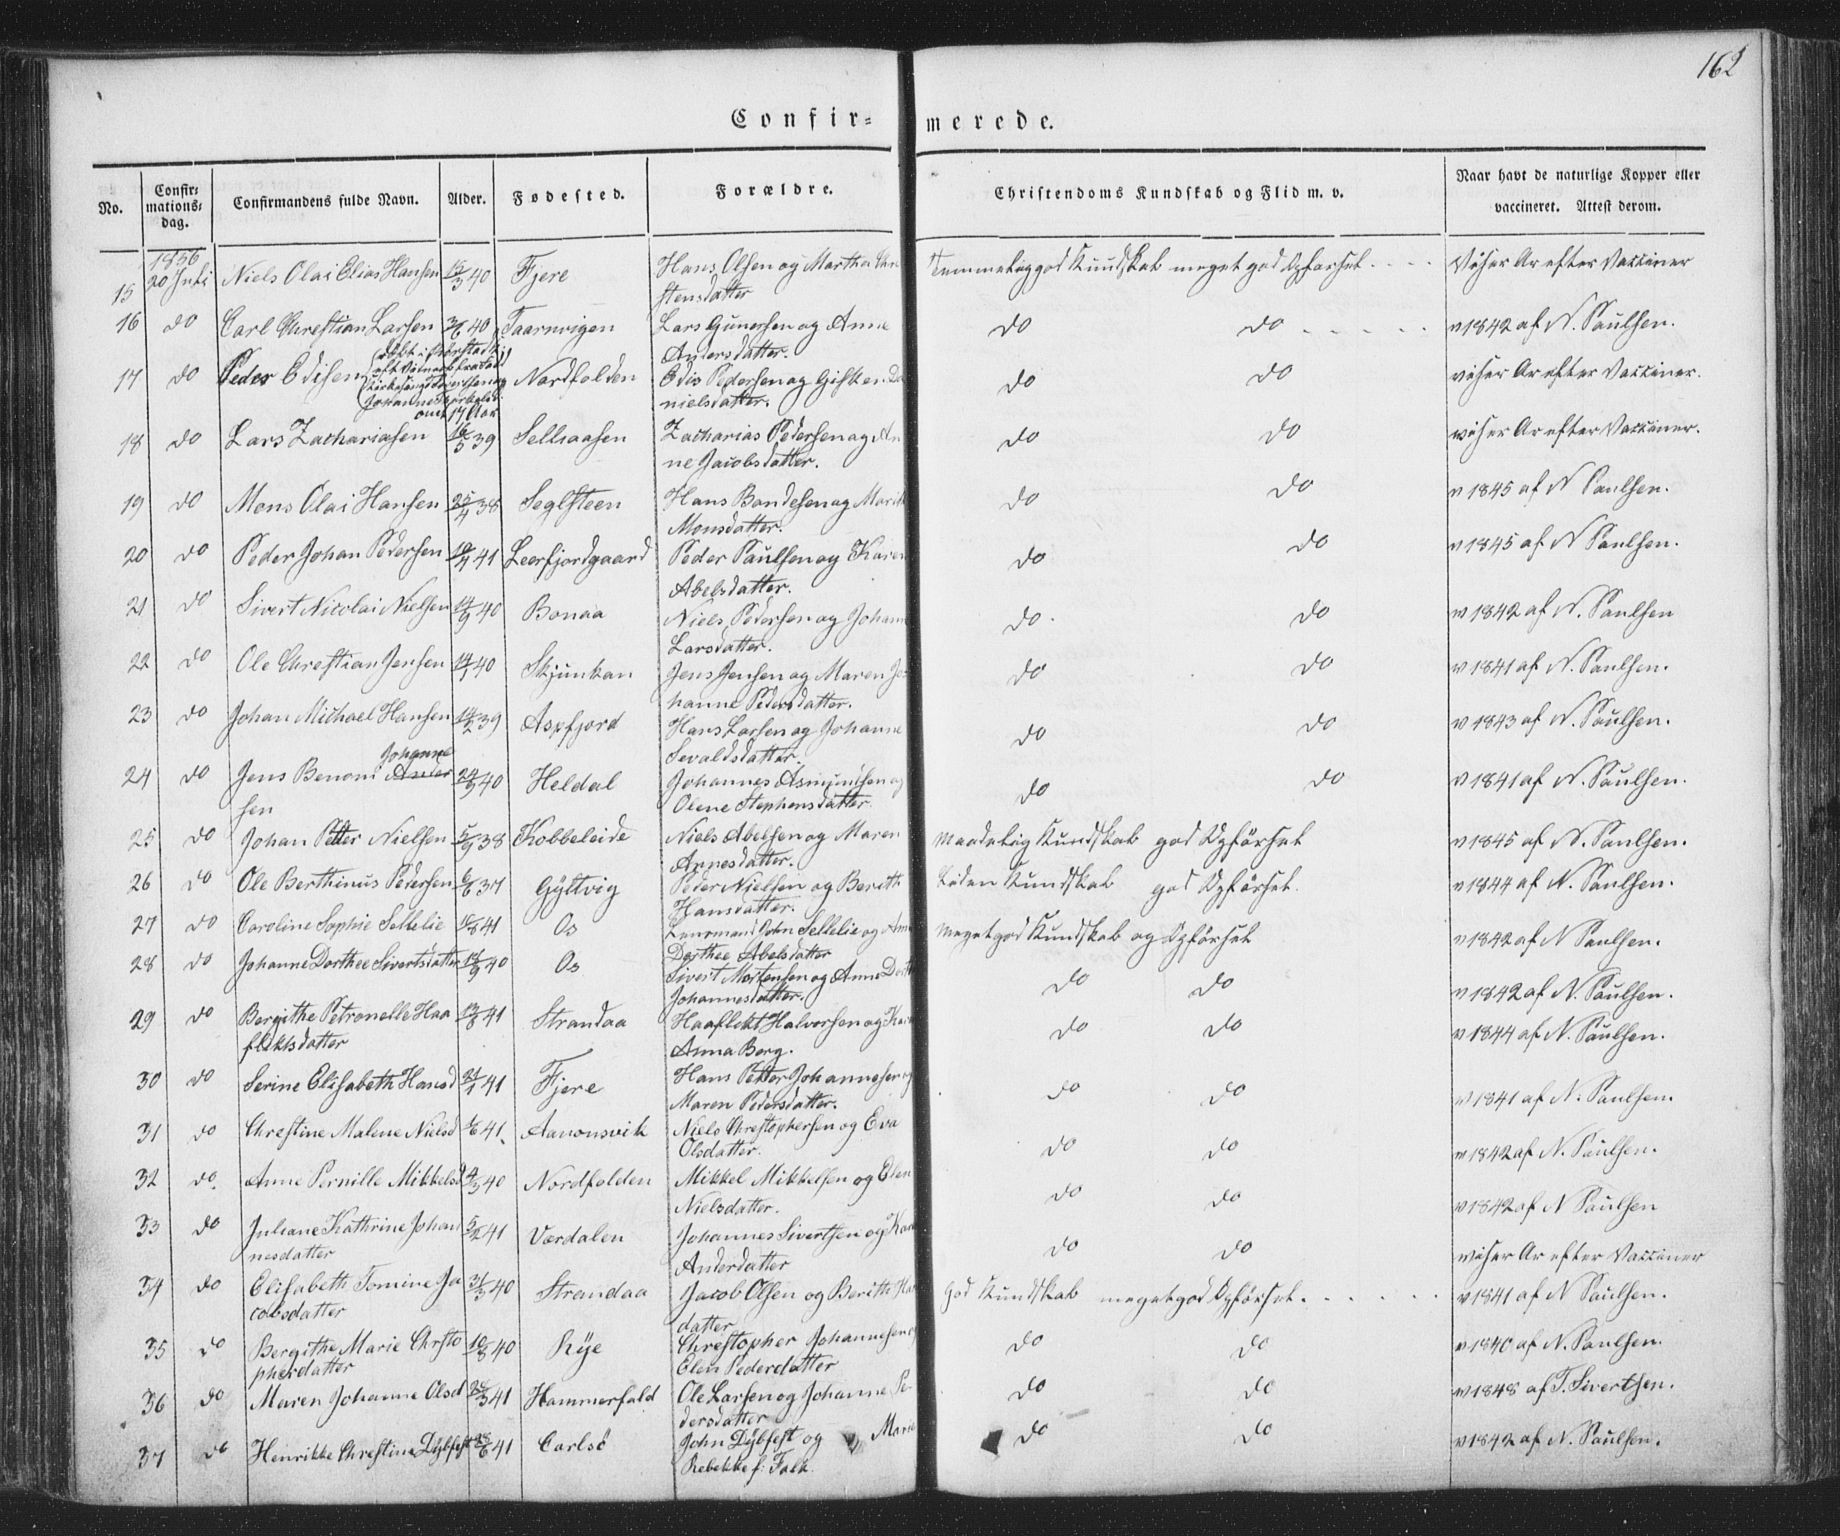 162
Confir= merede.
No. Confir= mations= dag. Confirmandens fulde Navn. Alder. Fødested. Forældre. Christendoms Kundskab og Flid m. v. Naar havt de naturlige Kopper eller vaccineret. Attest derom.
1856
15 20 Juli Niels Olai Elias Hansen 40 Fjere Hans Olsen og Martha Chri Temmelig god Kundskab meget god Opførsel viser Ar efter Vacciner
stensdatter
16 do Carl Christian Larsen 40 Taarnvigen Lars Gunersen og Anne do do v 1842 af N. Paulsen.
Andersdatter.
17 do Peder Edisen Nordfolden Edis Pedersen og Gisken Da do do viser Ar efter Vacciner.
nielsdatter.
omt. 17 Aar
18 do Lars Zachariasen 16/5 39 Sellsaasen Zacharias Pedersen og An do do viser Ar efter Vacciner.
ne Jacobsdatter.
19 do Mons Olai Hansen 25/4 38 Seglsteen Hans Bondesen og Marith do do v 1845 af N Paulsen.
Monsdatter.
20 do Peder Johan Pedersen 41 Leerfjordgaard Peder Paulsen og Karen do do v 1845 af N Paulsen.
Abelsdatter.
21 do Sivert Nicolai Nielsen 14/9 40 Bonaa Niels Pedersen og Johann do. do v 1842 af N. Paulsen
Larsdatter.
22 do Ole Christian Jensen 40 Skjunkan Jens Jensen og Maren Jo= do do v 1841 af N. Paulsen.
hanne Pedersdatter.
23 do Johan Michael Hansen 14/2 39 Aspfjord Hans Larsen og Johanne do do v 1843 af N. Paulsen.
Sevaldsdatter.
Johanne
24 do Jens Benoni Ander 24/9 40 Heldal Johannes Asmundsen og do do v 1841 af N. Paulsen.
sen Olene Stephensdatter
25 do Johan Petter Nielsen 5/9 38 Kobbeleide Niels Abelsen og Maren Maadelig Kundskab god Opførsel v 1845 af N. Paulsen.
Arnesdatter.
26 do Ole Berthinus Pedersen 6/6 37 Gyltvig Peder Nielsen og Berith Liden Kundskab god Opførsel. v 1844 af N. Paulsen.
Hansdatter.
27 do Caroline Sophie Sellelie 41 Os Lensmand John Sellelie og Ane Meget god Kundskab og Opførsel v 1842 af N Paulsen.
Dorthee Abelsdatter
28 do Johanne Dorthee Sivertsdatter 40 Os Sivert Mortensen og Anne Dorth do do v 1842 af N. Paulsen.
Johannesdatter.
29 do Bergithe Petronelle Haa 13/8 41 Strandaa Haaflekt Halvorsen og Kar do do v 1844 af N. Paulsen.
flektsdatter Anna Berg.
30 do Serine Elisabeth Hansd 21/1 41 Fjere Hans Petter Johannesen og do do v 1841 af N. Paulsen.
Maren Pedersdatter.
31 do Christine Malene Nielsd 41. Aanonsvik Niels Christophersen og Eva do do v 1842 af N. Paulsen.
Olsdatter.
32 do. Anne Pernille Mikkelsd 4/3 40 Nordfolden Mikkel Mikkelsen og Elen do do v 1842 af N Paulsen
Nielsdatter.
33 do Juliane Kathrine Johan 5/2 41 Værdalen Johannes Sivertsen og Kar do do viser Ar efter Vacciner
nesdatter Andersdatter
34 do Elisabeth Tomine Ja 31/3 40 Strandaa Jacob Olsen og Berith Han God Kundskab meget god Opførsel. v 1841 af N Paulsen.
cobsdatter datter
35 do Bergithe Marie Christo 10/8 40 Rye Christopher Johannesen og do do v 1840 af N. Paulsen.
phersdatter Elen Pedersdatter
36 do Maren Johanne Olsd 41 Hammerfald Ole Larsen og Johanne Pe do do v 1848 af T. Sivertsen.
dersdatter
37 do Henrikke Christine Dybfest 41 Carlsö John Dybfest og Marie do do v 1842 af N. Paulsen.
Rebekke f: Falk.